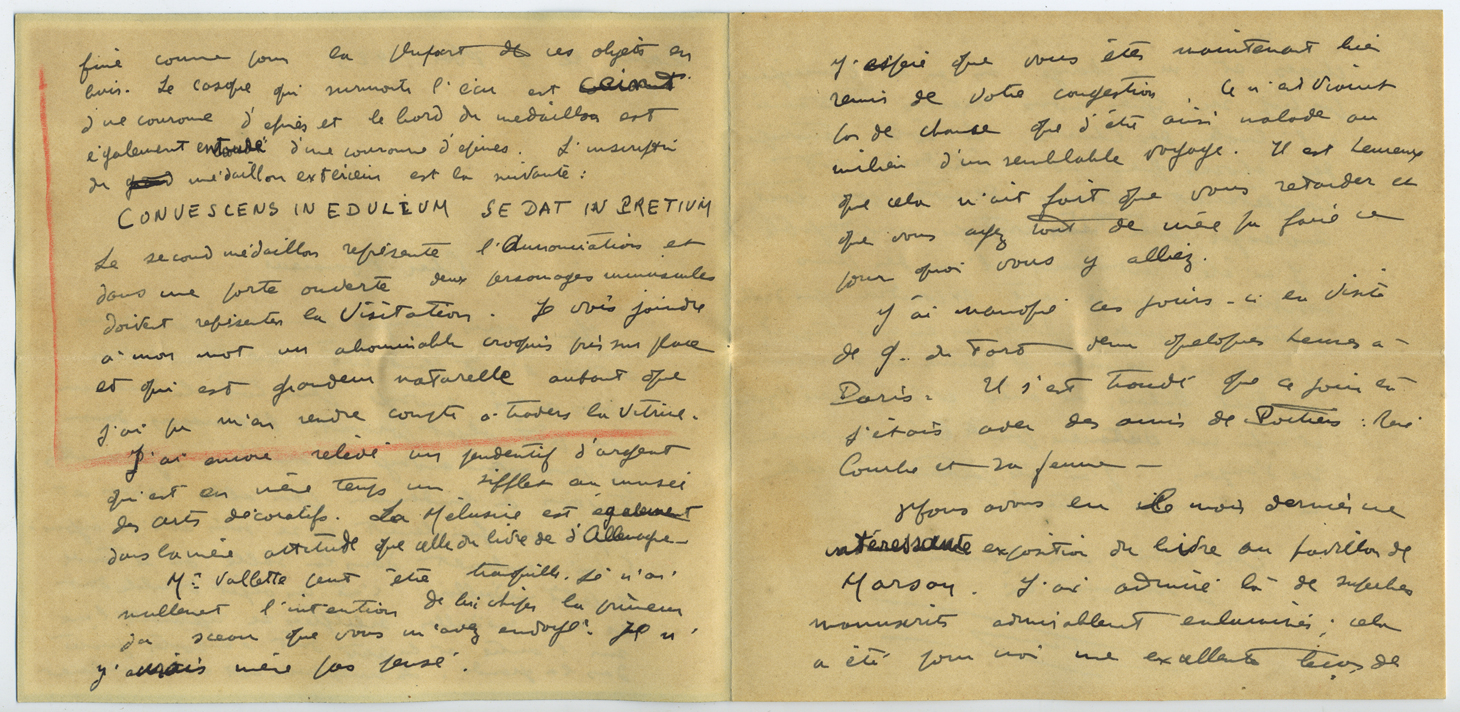 fine comme pour la plupart de ces objets en
bois. Le casque qui surmonte l'écu est ceint
d'une couronne d'épines et le bord du médaillon est
également entouré d'une couronne d'épines. L'inscription
du grand médaillon extérieur est la suivante :
CONVESCENS IN EDULIUM SE DAT IN PRETIUM
Le second médaillon représente l'Annonciation et
dans une porte ouverte deux personnages minuscules
doivent représenter la Visitation. Je vais joindre
à mon mot un abominable croquis pris sur place
et qui est grandeur naturelle autant que
j'ai pu m'en rendre compte à travers la vitrine.
J'ai encore relevé un pendentif d'argent
qui est en même temps un sifflet au musée
des arts décoratifs. La Mélusine est également
dans la même attitude que celle du livre de d'Allemagne
Mr Vallette peut être tranquille. Je n'ai
nullement l'intention de lui chiper la primeur
du sceau que vous m'avez envoyé. Je n'
y aurais même pas pensé.
J'espère que vous êtes maintenant bien
remis de votre congestion. Ce n'est vraiment
pas de chance que d'être ainsi malade au
milieu d'un semblable voyage. Il est heureux
que cela n'ait fait que vous retarder et
que vous ayez tout de même pu faire ce
pour quoi vous y alliez.
J'ai manqué ces jours-ci en visite
de G. du Fort venu quelques heures à
Paris. Il s'est trouvé que ce jour là
j'étais avec des amis de Poitiers : René
Combe et sa femme –
Nous avons eu le mois dernier une
intéressante exposition du livre au pavillon de
Marsan. J'ai admiré là de superbes
manuscrits admirablement enluminés ; cela
a été pour moi une excellente leçon de